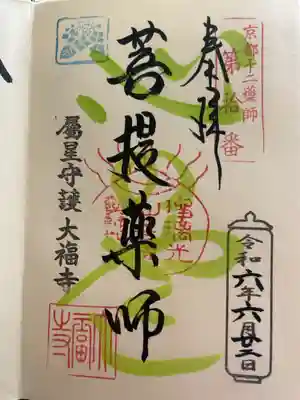 京都十二薬師
第拾番
奉拝
菩提薬師
屬星守護 大福寺
令和六年六月廿二日
大福寺